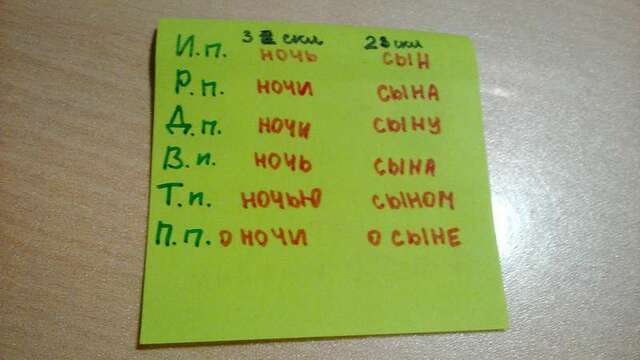 3 скл 2 скл
И.п. ночь сын
Р.п. ночи сына
Д.п. ночи сыну
В.п. ночь сына
Т.п. ночью сыном
П.п. о ночи о сыне